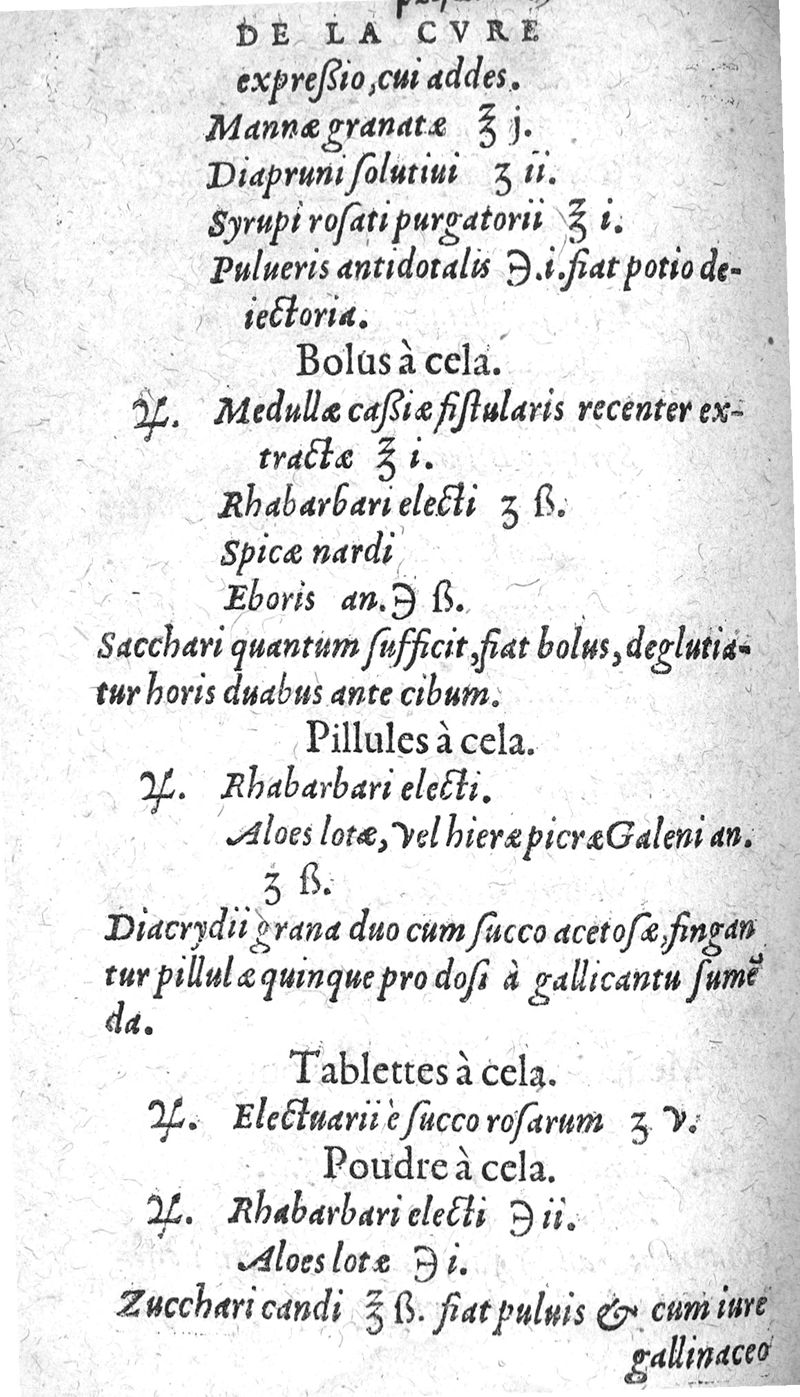 DE LA CVRE
expreßio, cui addes.
Mannæ granatæ ℥ j.
Diapruni ſolutiui ʒ ii.
Syrupi roſati purgatorii ℥ i.
Pulueris antidotalis ℈.i. fiat potio de-
iectoria.
Bolus à cela.
♃. Medullæ caßiæ fiſtularis recenter ex-
tractæ ℥ i.
Rhabarbari electi ʒ ß.
Spicæ nardi
Eboris an. ℈ ß.
Sacchari quantum ſufficit, fiat bolus, deglutia-
tur horis duabus ante cibum.
Pillules à cela.
♃. Rhabarbari electi.
Aloes lotæ, vel hieræ picræ Galeni an.
ʒ ß.
Diacrydii grana duo cum ſucco acetoſæ, fingan
tur pillulæ quinque pro doſi à gallicantu ſumẽ
da.
Tablettes à cela.
♃. Electuarii è ſucco roſarum ʒ v.
Poudre à cela.
♃. Rhabarbari electi ℈ ii.
Aloes lotæ ℈ i.
Zucchari candi ℥ ß. fiat puluis & cum iure
gallinaceo